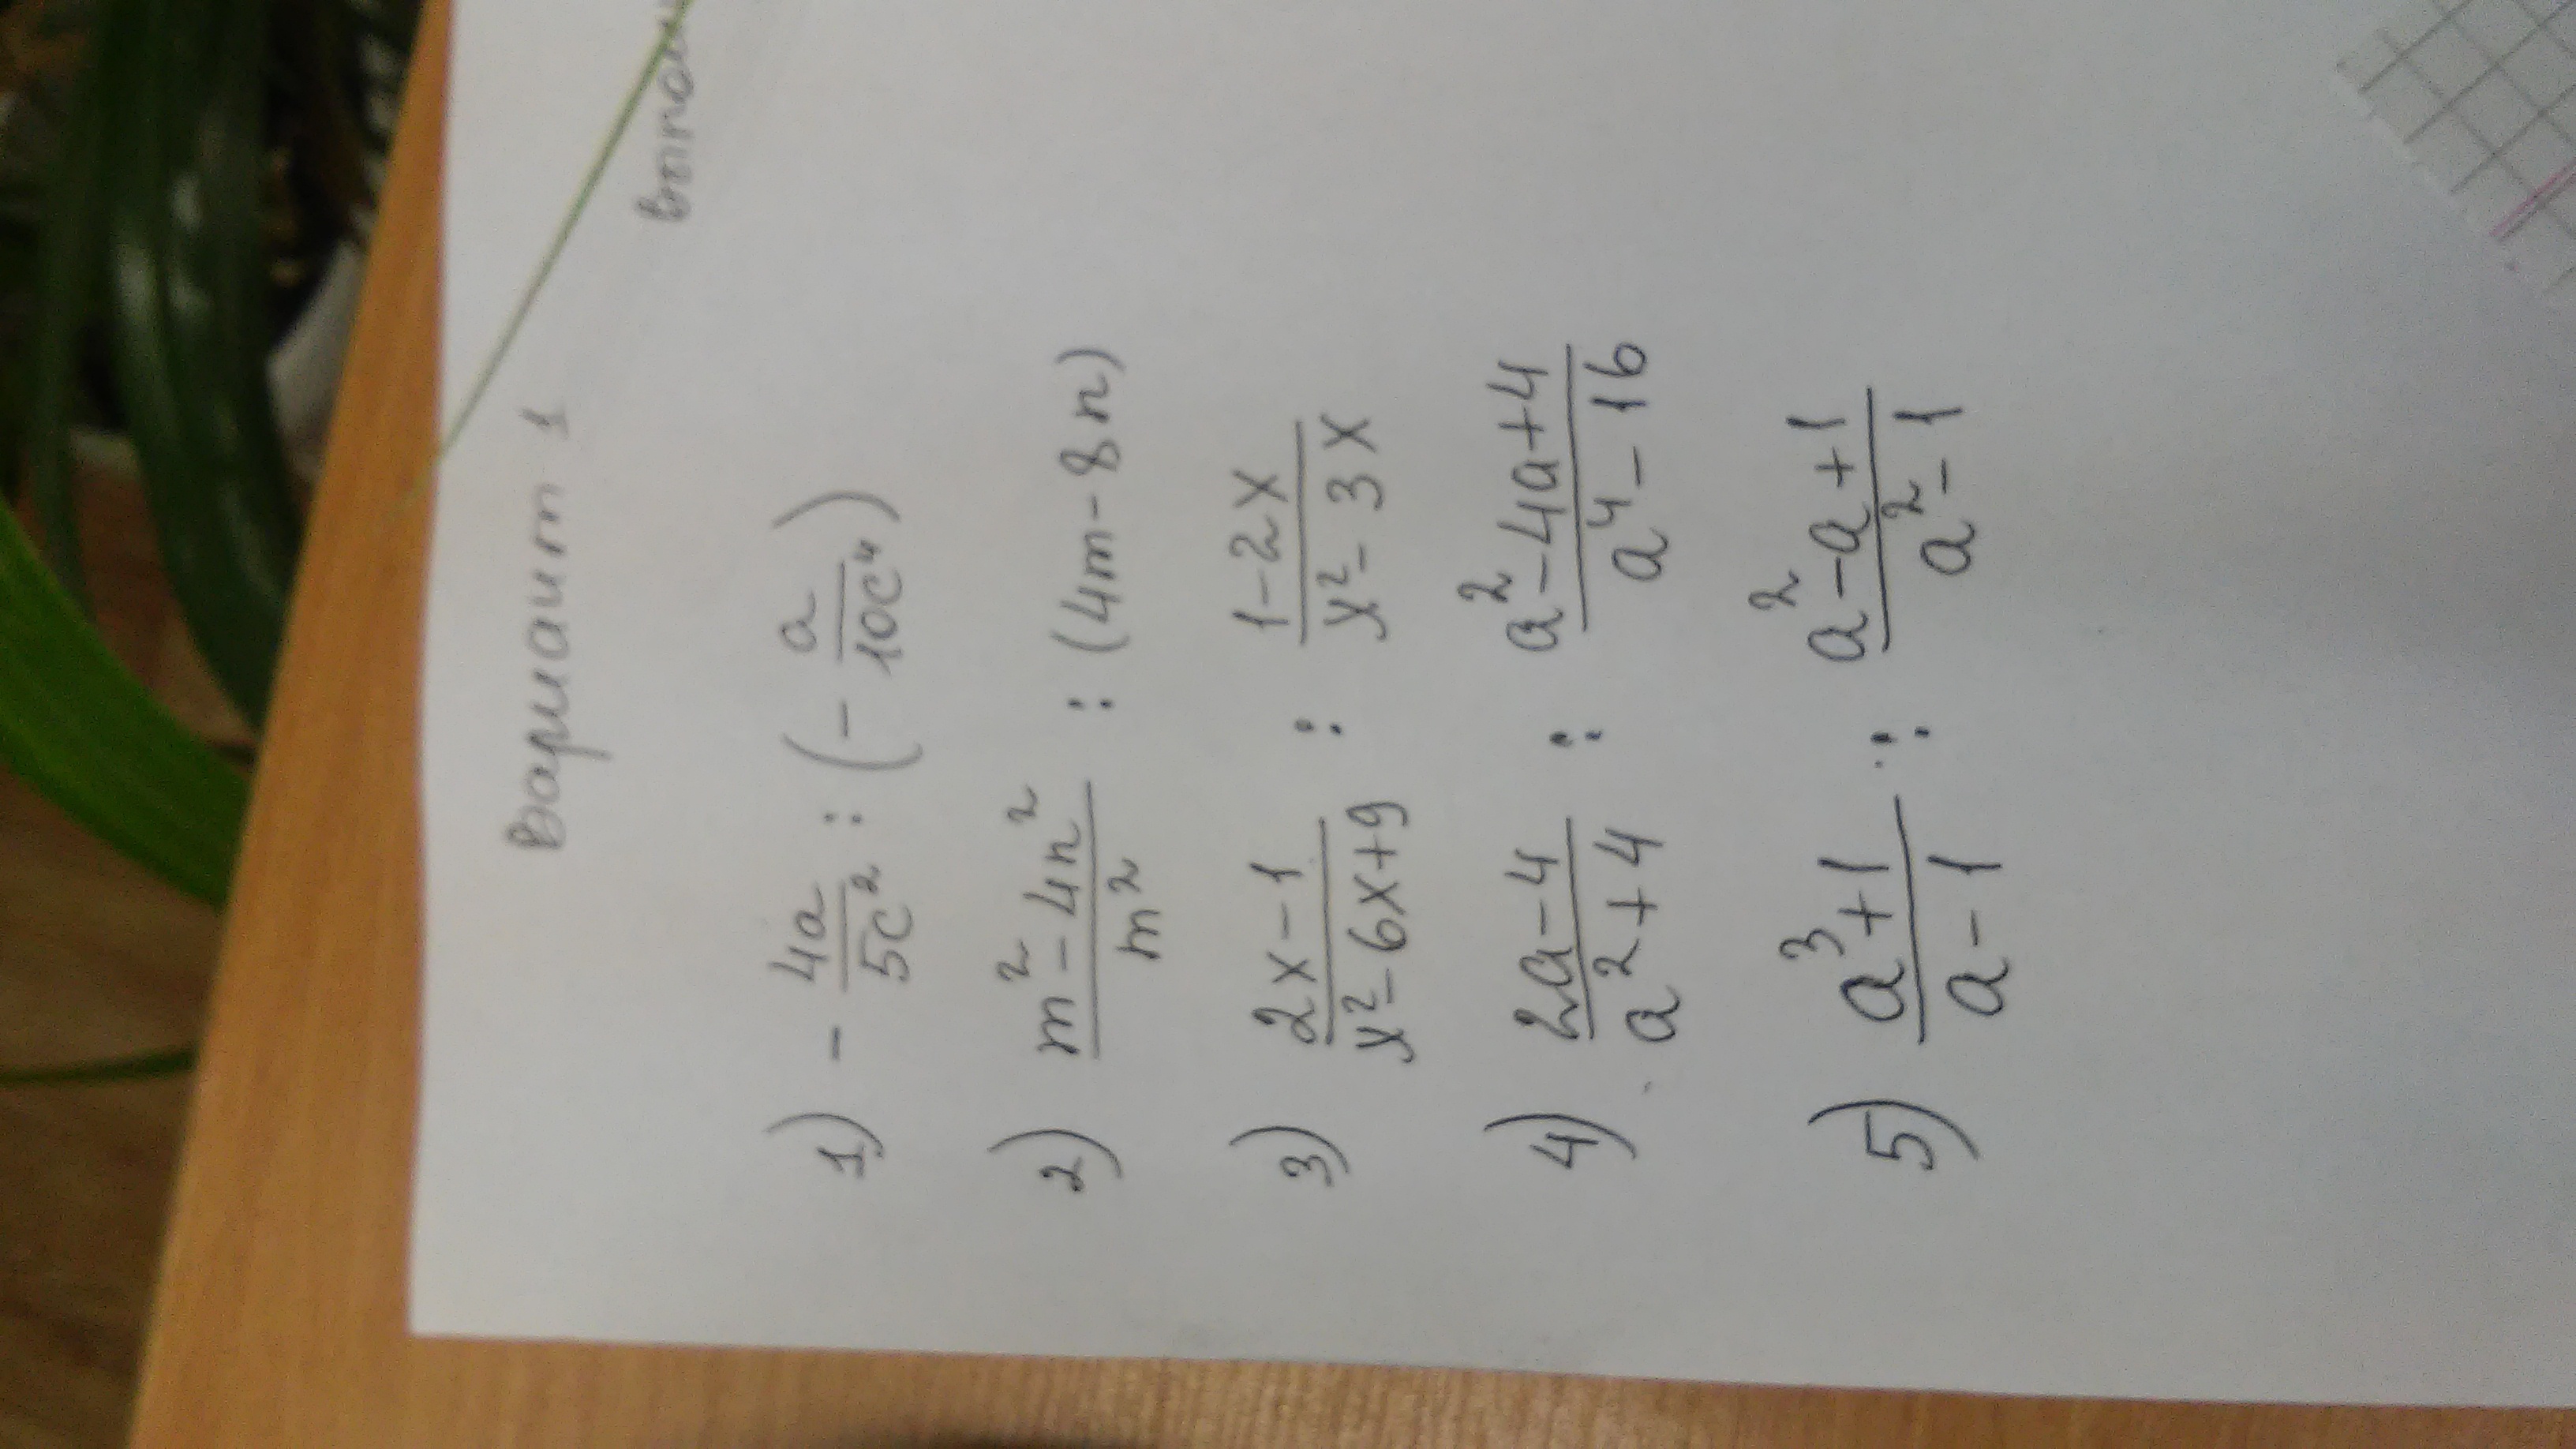 Вариант 1
1) - 4a/5c² : (- a/10c⁴)
2) m² - 4n²/m² : (4m - 8n)
3) 2x - 1/x² - 6x + 9 : 1 - 2x/x² - 3x
4) 2a - 4/a² + 4 : a² - 4a + 4/a⁴ - 16
5) a³ + 1/a - 1 : a² - a + 1/a² - 1